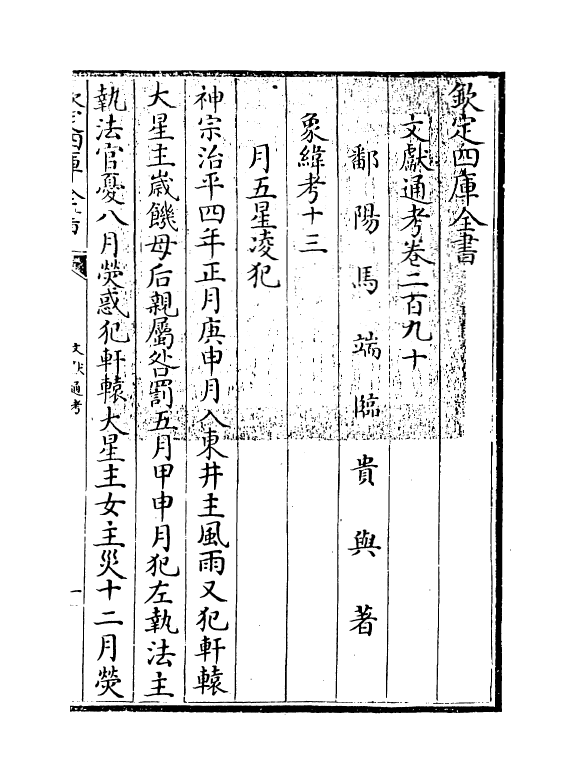 欽定四庫全書
文獻通考卷二百九十
鄱陽馬端臨貴與著
象緯考十三
月五星凌犯
神宗治平四年正月庚申月入東井主風雨又犯軒轅
大星主歲饑母后親屬咎罰五月甲申月犯左執法主
執法官憂八月熒惑犯軒轅大星主女主災十二月熒
文獻通考
一